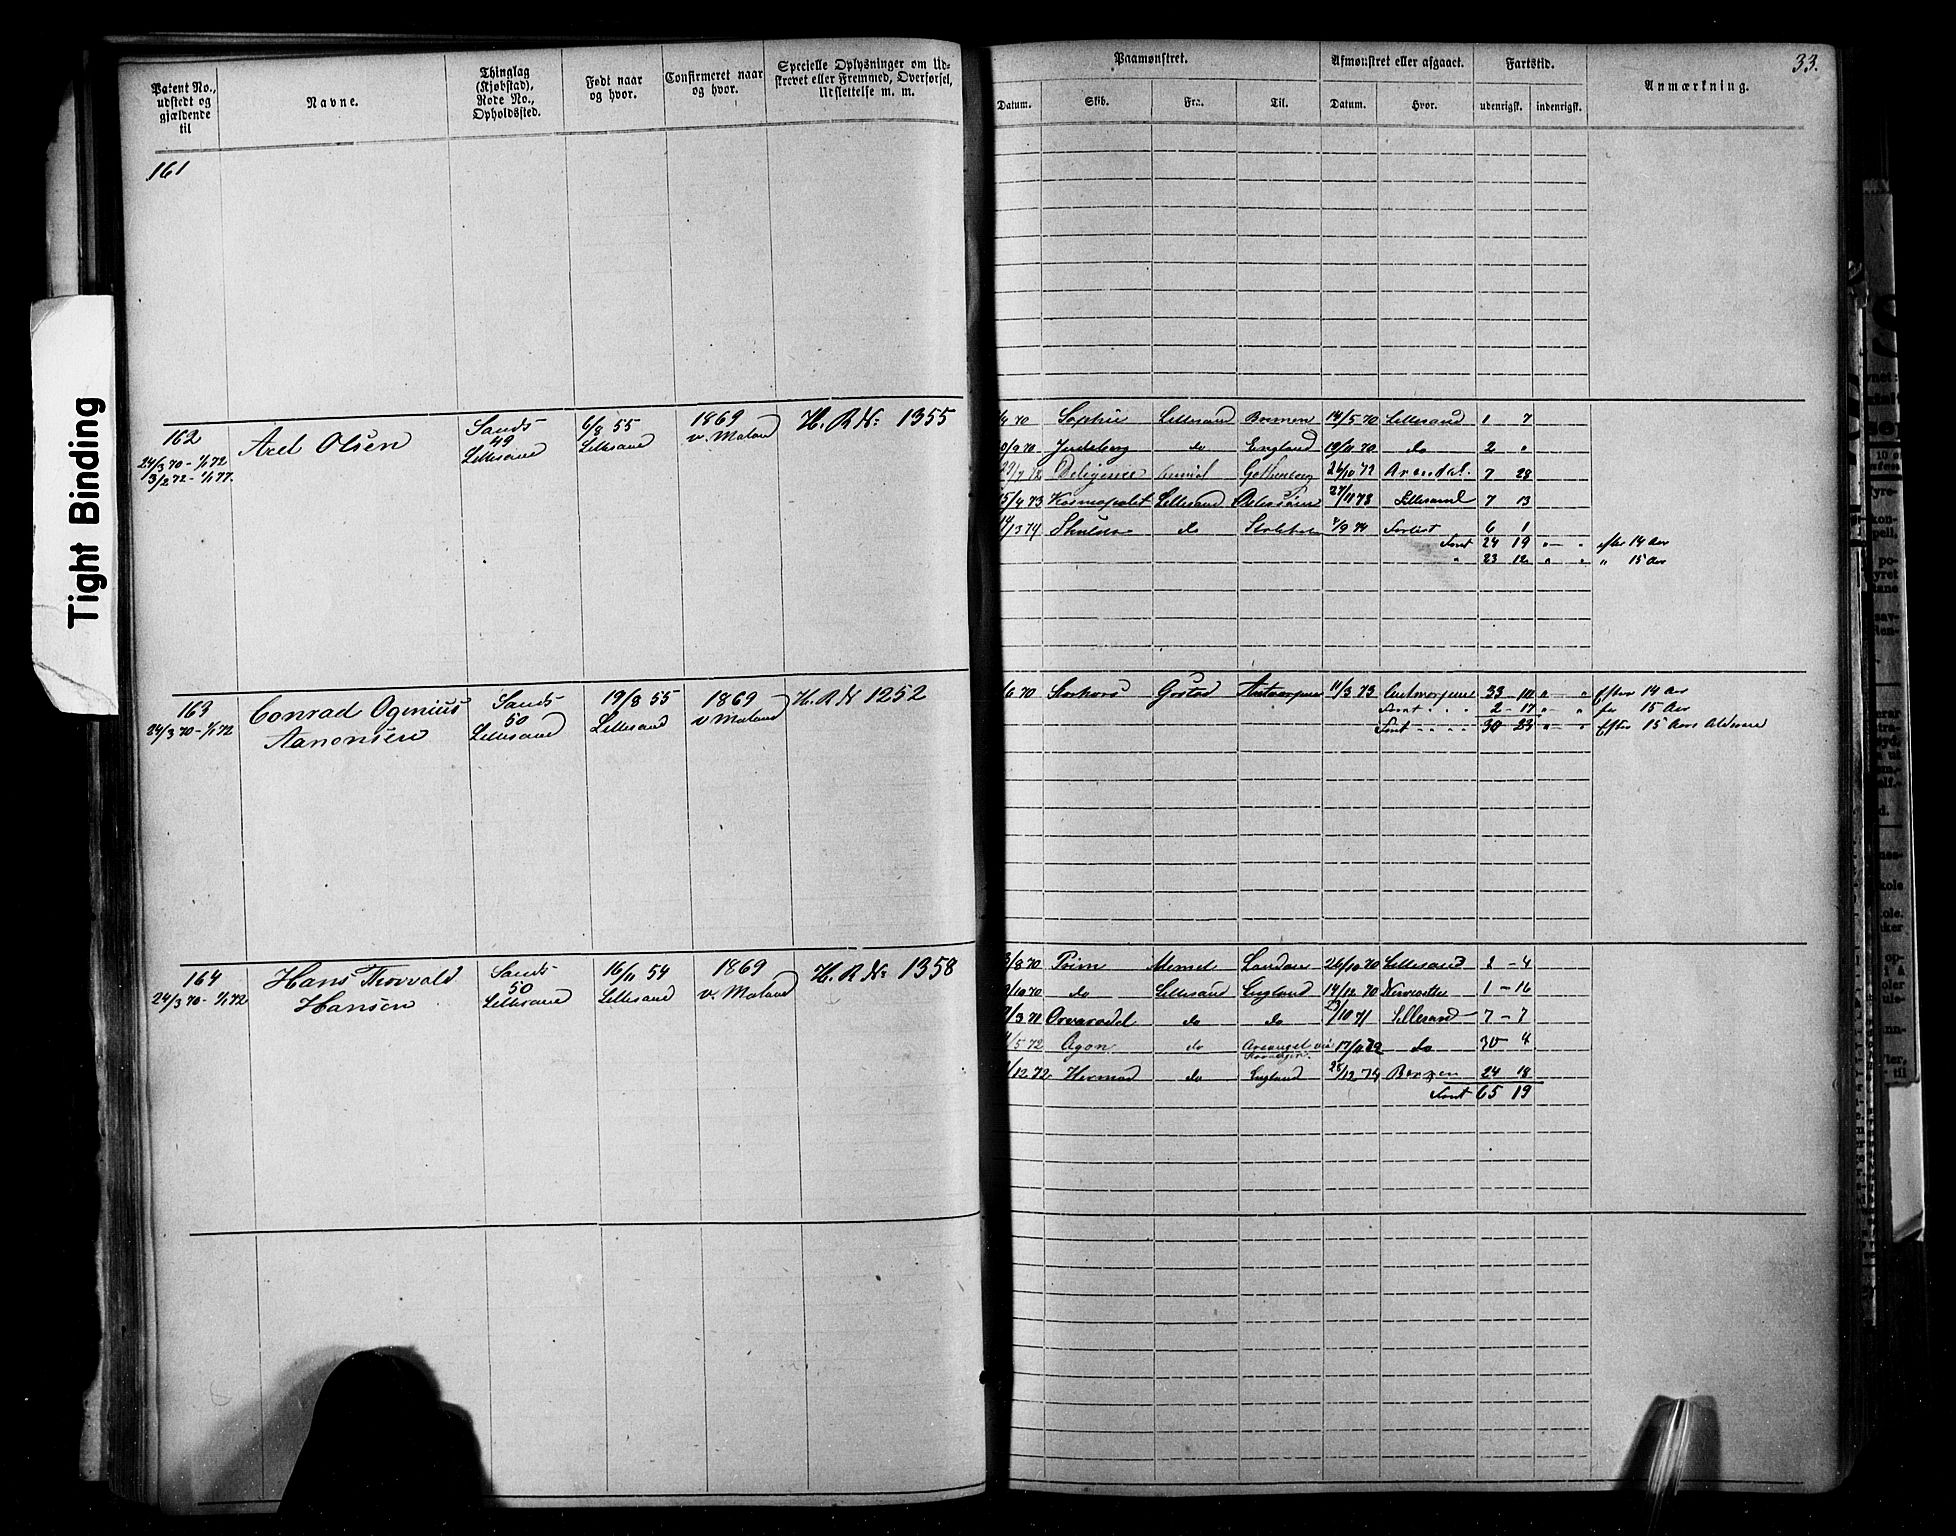 33.
Patent No., udstedt og gjældende til
Navne.
Thinglag (Kjøbstad), Rode No., Opholdssted.
Født naar og hvor.
Confirmeret naar og hvor.
Specielle Oplysninger om Udskrevet eller Fremmed, Overførsel, Udslettelse m. m.
Paamønstret.
Datum. Skib. Fra. Til.
Afmønstret eller afgaaet.
Datum. Hvor.
Fartstid.
udenrigsk. indenrigsk.
Anmærkning.
161
162
24/3 70 - 1/1 72
3/2 72 - 1/1 77.
Axel Olsen
Sands
49
Lillesand
6/8 55
Lillesand
1869
v. Moland
H. R. No: 1355
/4 70 Sophie Lillesand Bremen 14/5 70 Lillesand 1 7
0/9 70 do England 19/11 70 do 2 "
Deligence Gothenborg 26/10 72 Arendal. 7 28
5/4 73 Kosmopolit Lillesand 27/11 73 Lillesand 7 13
14/3 74 do 2/9 74 Forlist 6 1
Fart 24 19 " — " efter 14 Aar
" 23 12 " " " 15 Aar
163
24/3 70 - 1/1 72
Conrad Ogenius
Aanonsen
Sands
50
Lillesand
19/8 55
Lillesand
1869
v Moland
H. R. No 1252
/6 70 Antwerpen 11/3 73 Antwerpen 33 - 10 " — " Efter 14 Aar
2 - 17 " — " før 15 Aar
Fart - - - - 30 - 23 " — " Efter 15 Aars Alderen
164
24/3 70 - 1/1 72
Hans Thorvald
Hansen
Sands
50
Lillesand
16/11 54
Lillesand
1869
v. Moland
H. R. No: 1358
3/8 70 Memel London 26/10 70 Lillesand 2 - 4
/10 70 do Lillesand England 14/12 70 Newcastle 1 - 16
/3 71 do do /10 71 Lillesand 7 - 7
/5 72 Agon do 17/11 72 do 30 4
/12 72. Hermod do England 28/12 74 Bergen 24 18
Fart 65 19
Tight Binding